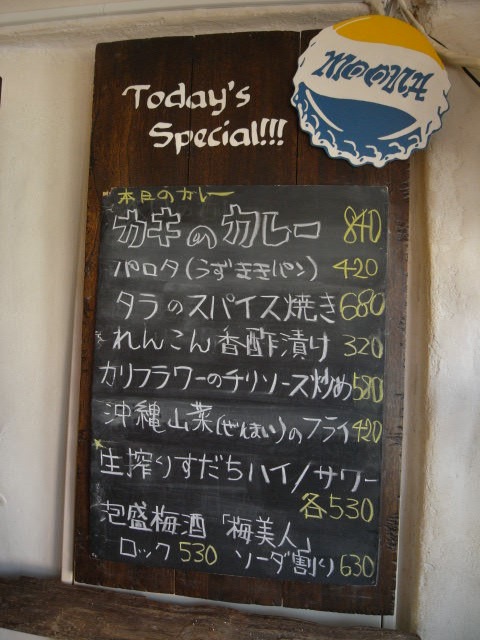 MOONA
Today's
Special!!!
本日のカレー
カキのカレー 840
パロタ(うずまきパン) 420
タラのスパイス焼き 680
れんこん香酢漬け 320
カリフラワーのチリソース炒め 580
沖縄山菜(ぜんまい)のフライ 420
生搾りすだちハイ/サワー
各530
泡盛梅酒「梅美人」
ロック 530 ソーダ割り 630